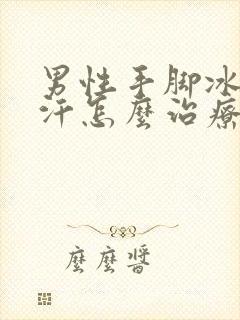 男性手脚冰
汗怎麼治療
麼麼醬